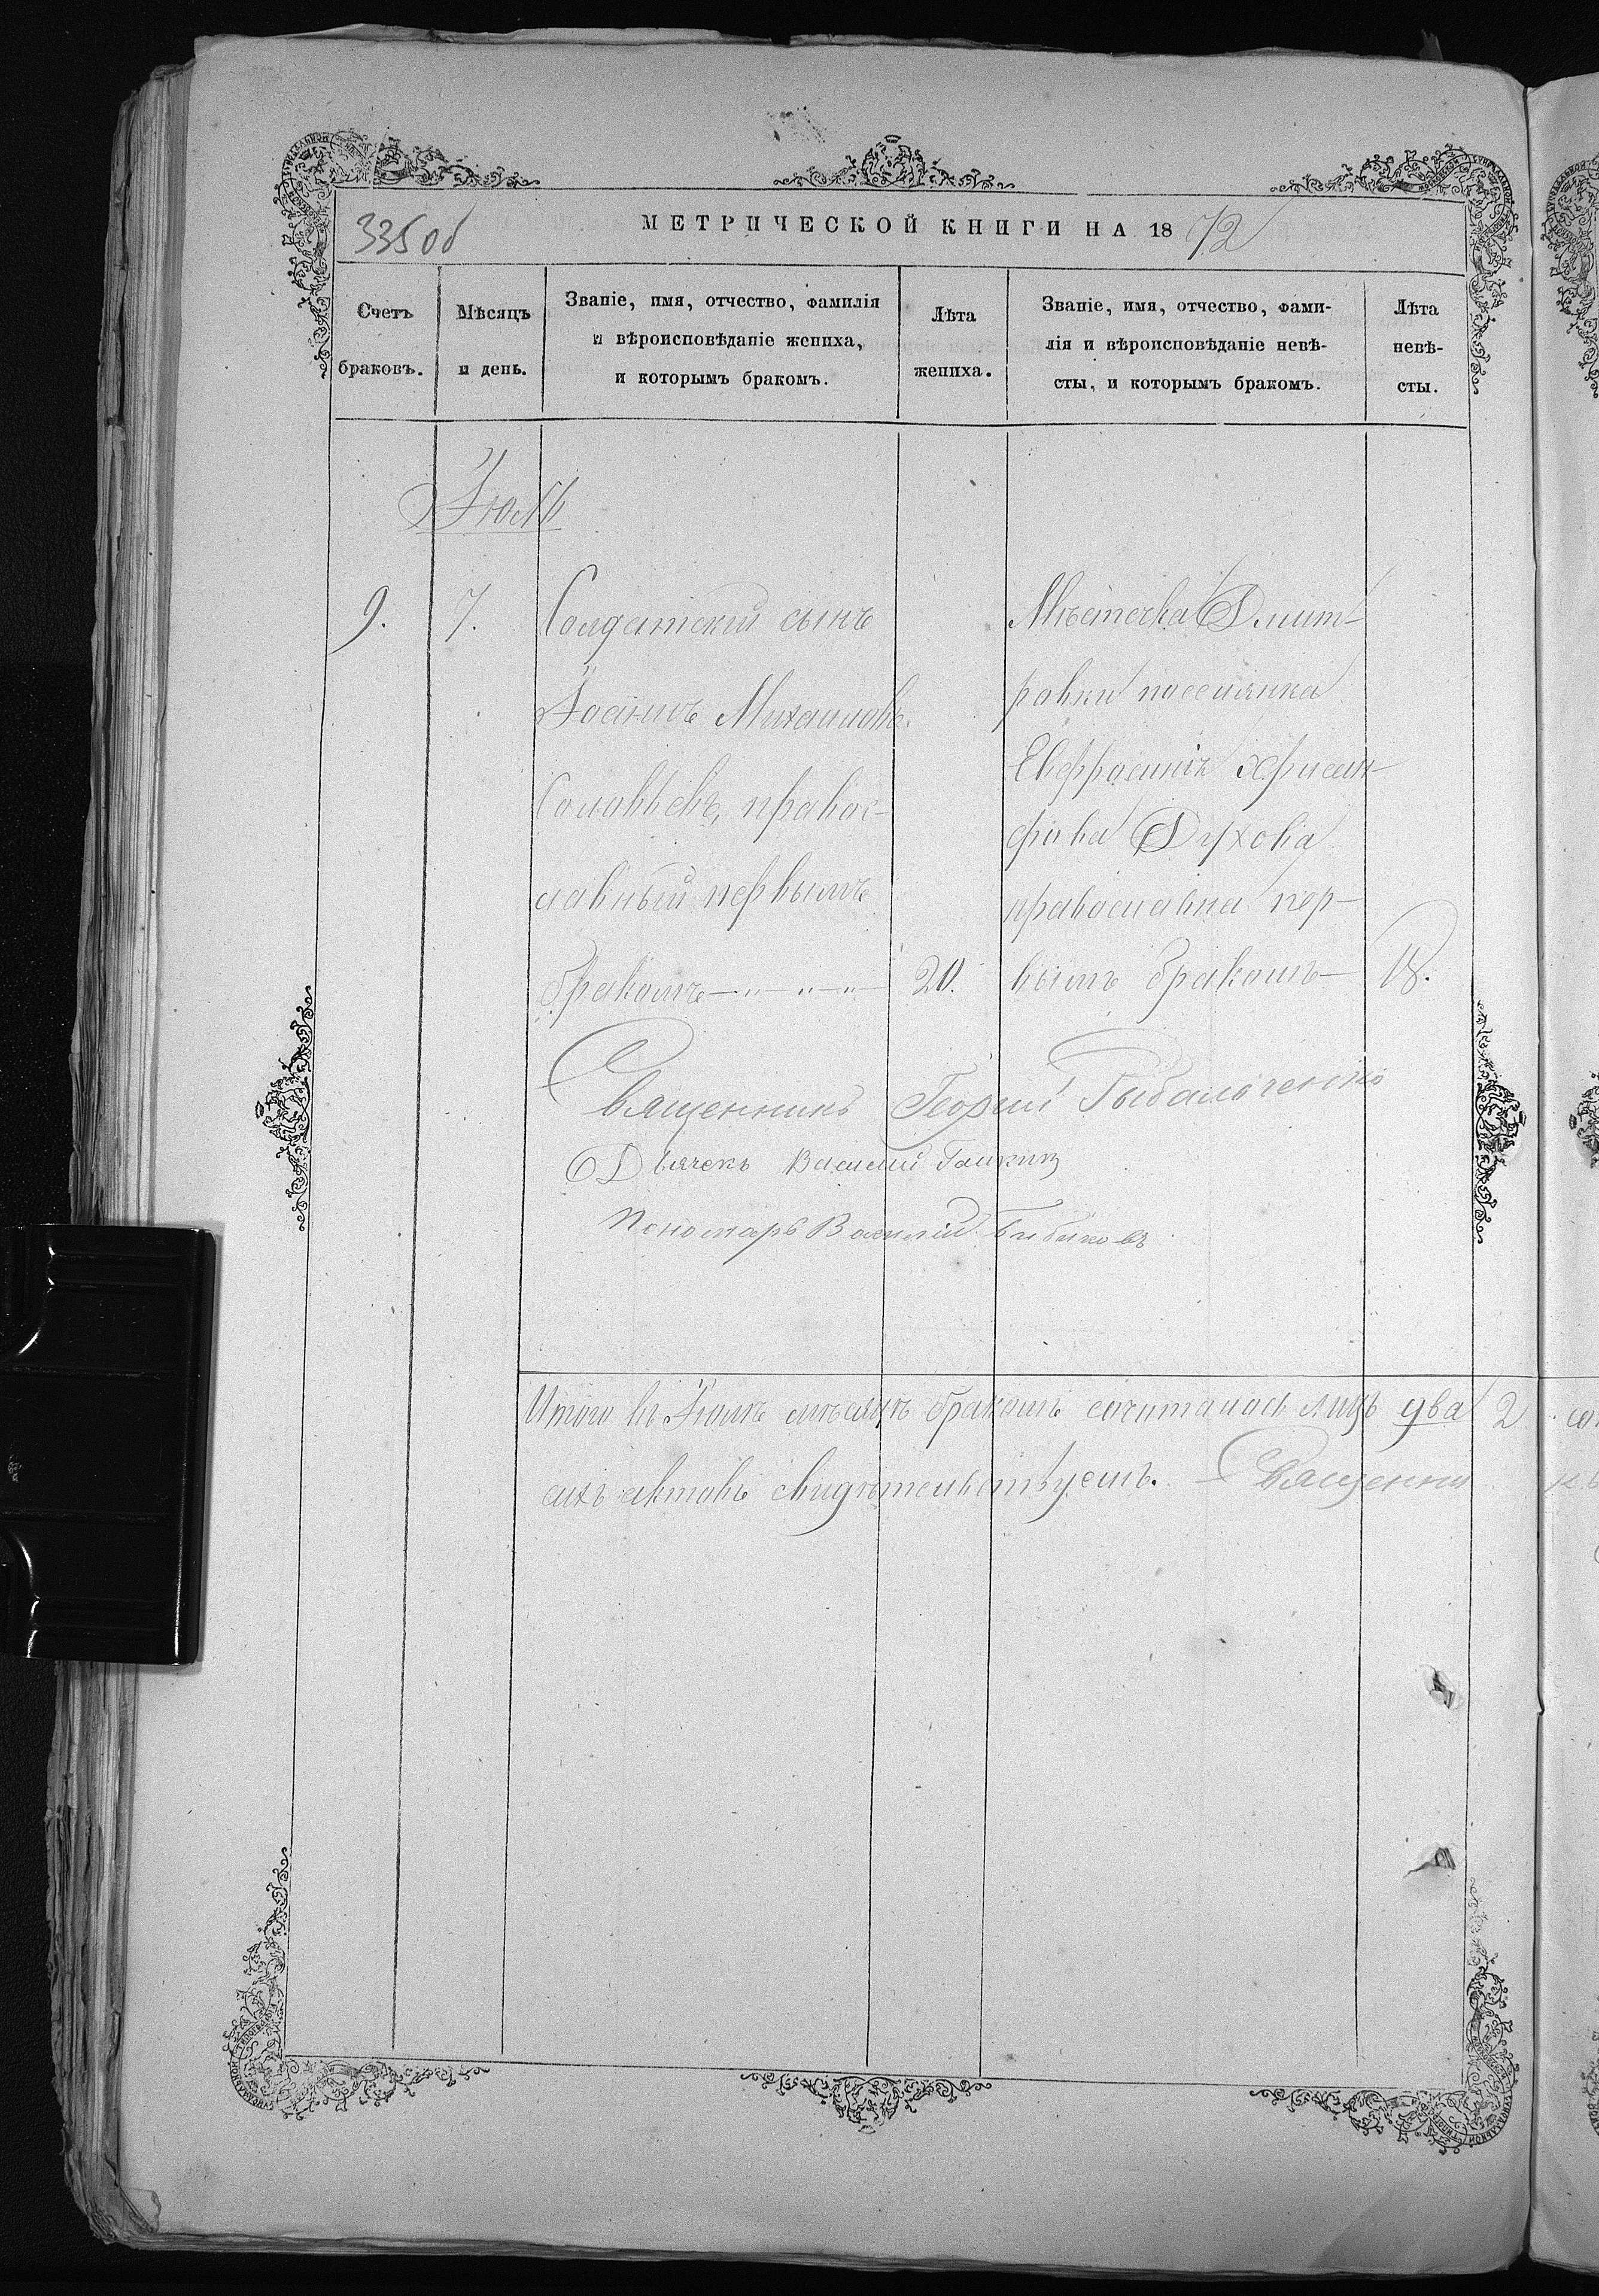 335 об
МЕТРИЧЕСКОЙ КНИГИ НА 1872
Счетъ браковъ.
Мѣсяцъ и день.
Званіе, имя, отчество, фамилія
и вѣроисповѣданіе жениха,
и которымъ бракомъ.
Лѣта жениха.
Званіе, имя, отчество, фами-
лія и вѣроисповѣданіе невѣ-
сты, и которымъ бракомъ.
Лѣта невѣ-
сты.
Іюль
9.
7.
Солдатскій сынъ
Іоаннъ Михаиловъ
Соловьевъ, правос-
лавный первымъ
бракомъ
20.
Мѣстечка Дмит-
ровки поселянка
Евфросинія Хрисан-
фова Духова
православна пер-
вымъ бракомъ
18.
Священникъ Георгій
Дьячекъ Василій
Пономарь Василій Бибиковъ
Итого въ Іюлѣ мѣсяцѣ бракомъ сочеталось лицъ два 2
сихъ актовъ свидѣтельствуемъ. Священни